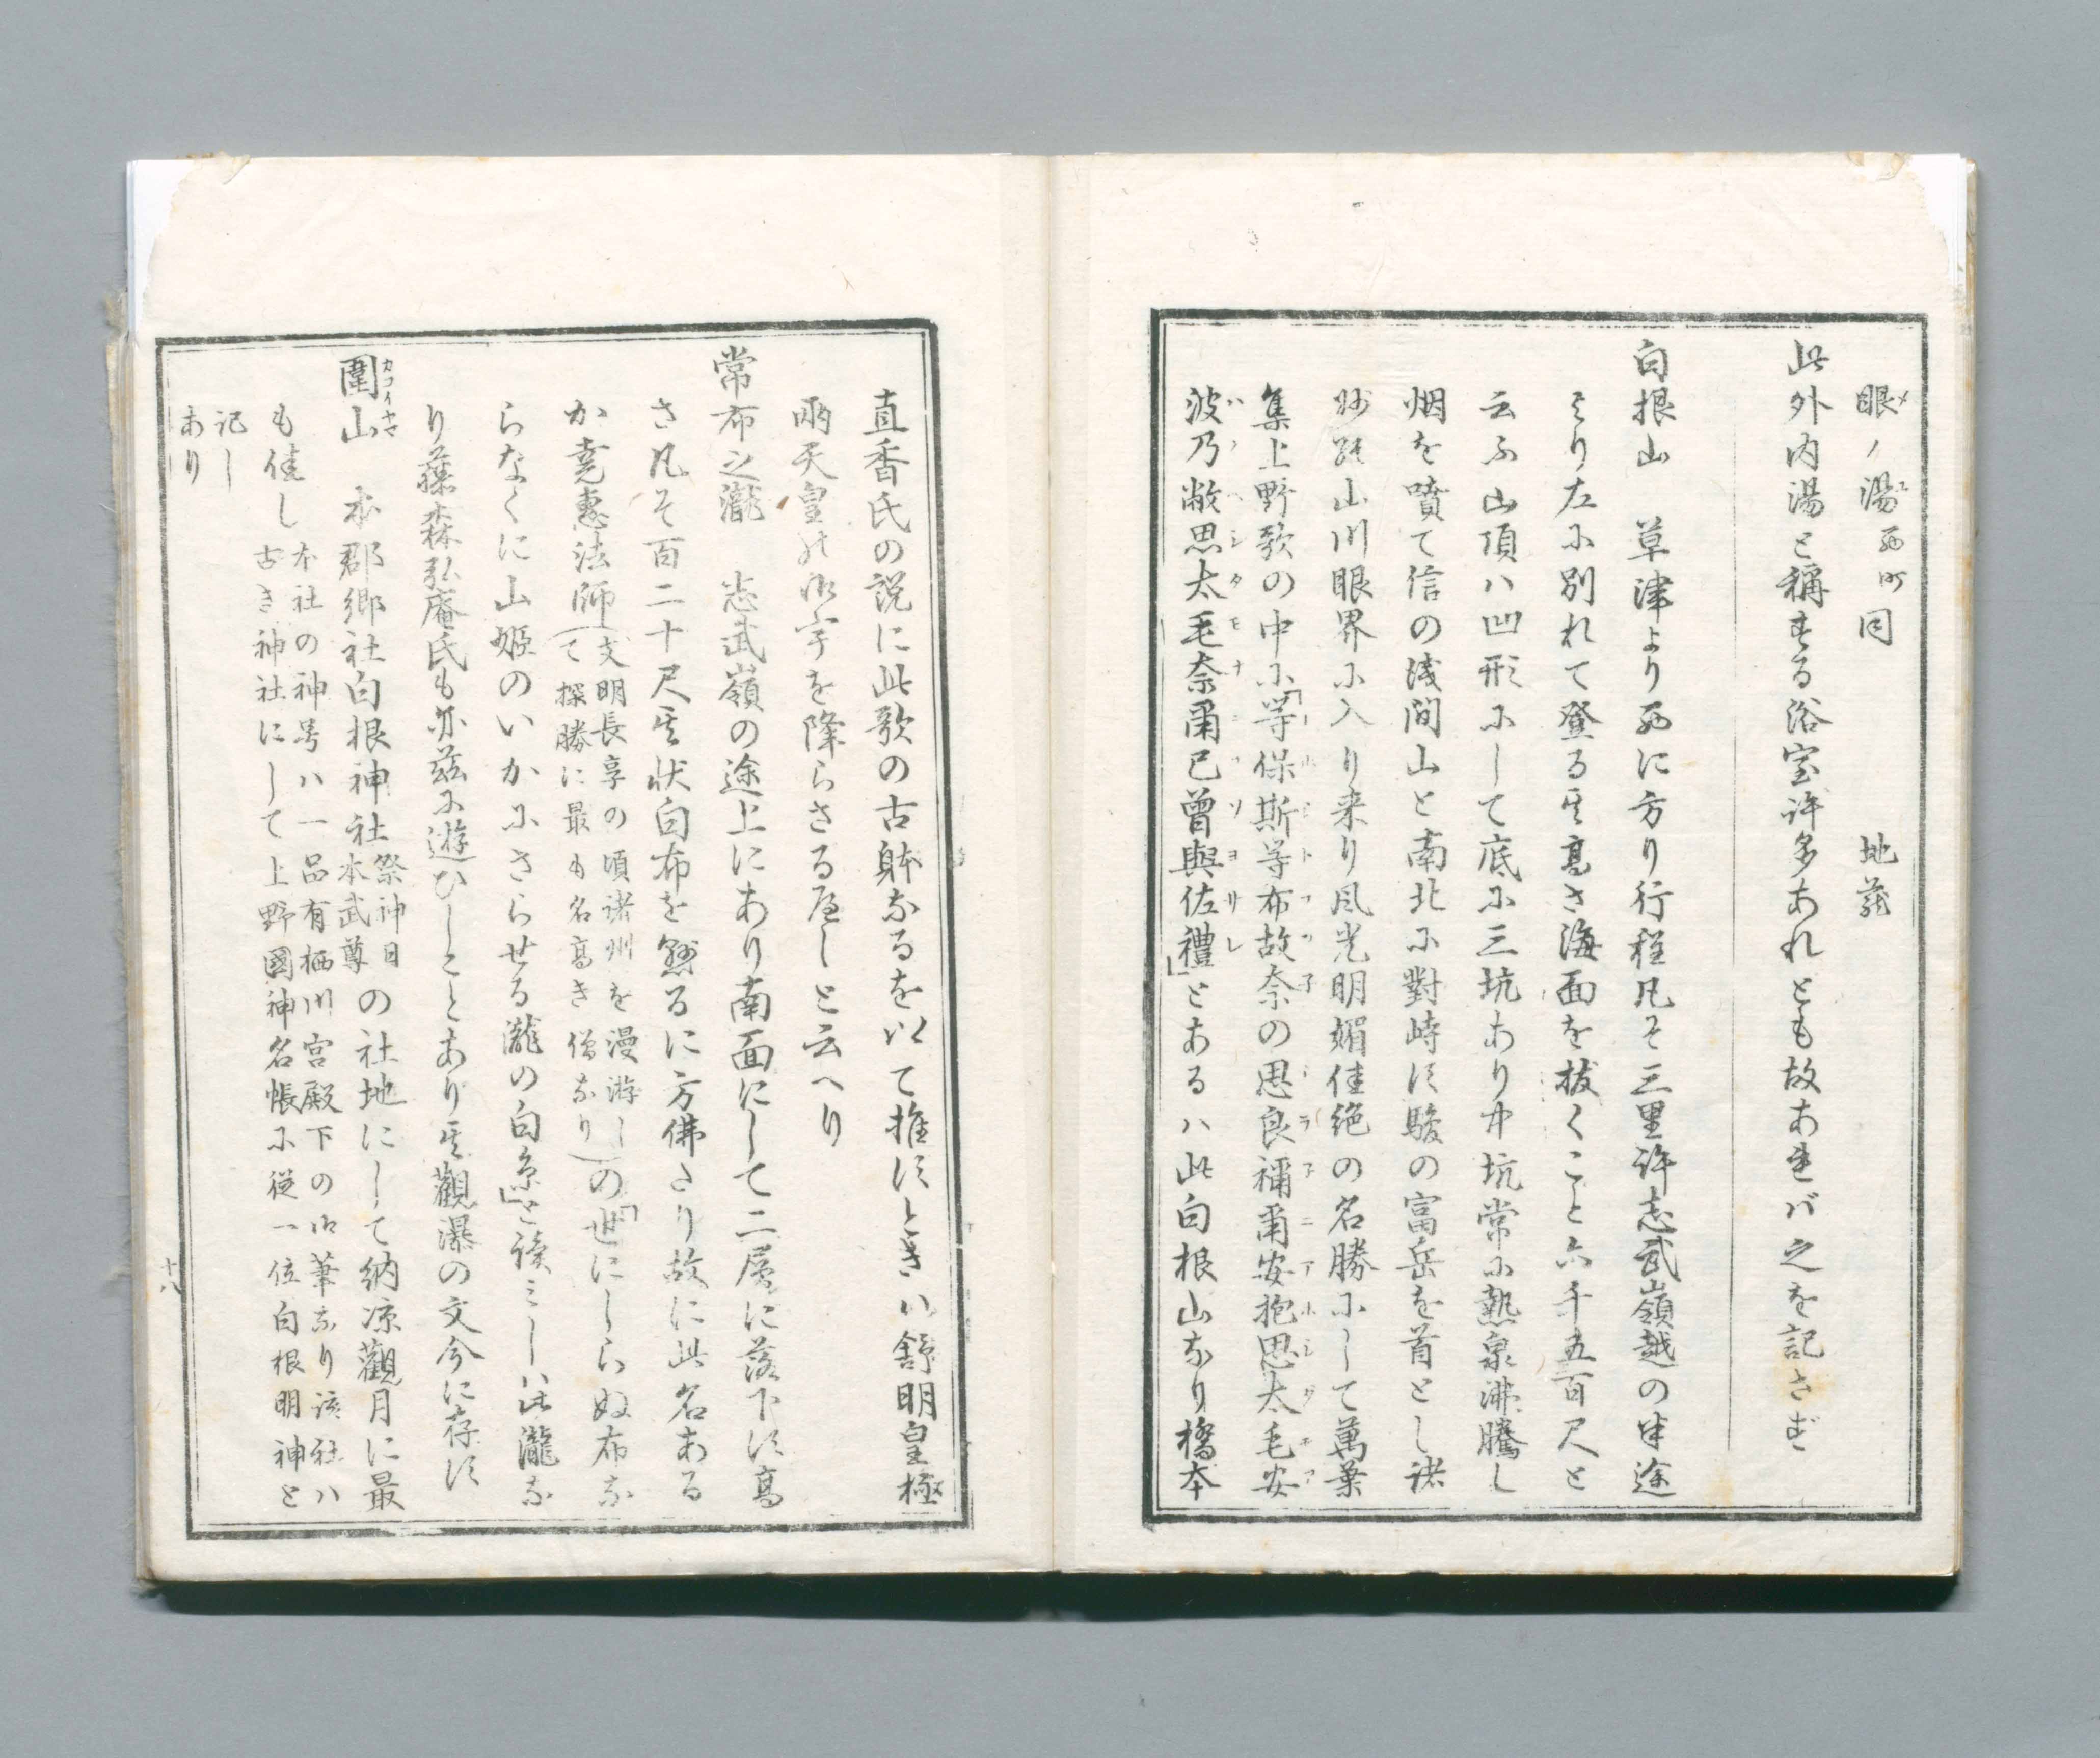 眼ノ湯 西町 同 地蔵
此外内湯と稱する浴室許多あれとも故あれバ之を記さず
白根山 草津より西に方り行程凡そ三里許志武嶺越の半途
より左に別れて登る其高さ海面を抜くこと六千五百尺と
云ふ山頂ハ凹形にして底に三坑あり中坑常に熱泉沸騰し
烟を噴て信の浅間山と南北に對峙す駿の富岳を首とし諸
州の山川眼界に入り来り風光明媚佳絶の名勝にして萬葉
集上野歌の中に「等保斯等布故奈の思良禰爾安抱思太毛安
波乃敝思太毛奈爾已曽與佐禮」とあるハ此白根山なり橋本
直香氏の説に此歌の古躰なるを以て推すときハ舒明皇極
両天皇の御宇を降らさる可しと云へり
常布之瀧 志武嶺の途上にあり南面にして二層に落下す高
さ凡そ百二十尺其状白布を懸るに方佛たり故に此名ある
か堯惠法師(文明長享の頃諸州を漫游し
て探勝に最も名高き僧なり)の「世にしらぬ布な
らなくに山姫のいかにさらせる瀧の白糸」と詠ミしハ此瀧な
り藤森弘庵氏も亦茲に遊ひしことあり其觀瀑の文今に存す
圍山 本郡郷社白根神社 祭神日
本武尊 の社地にして納凉觀月に最
も佳し 本社の神号ハ一品有栖川宮殿下の御筆なり該社ハ
古き神社にして上野國神名帳に従一位白根明神と
記し
あり
十八